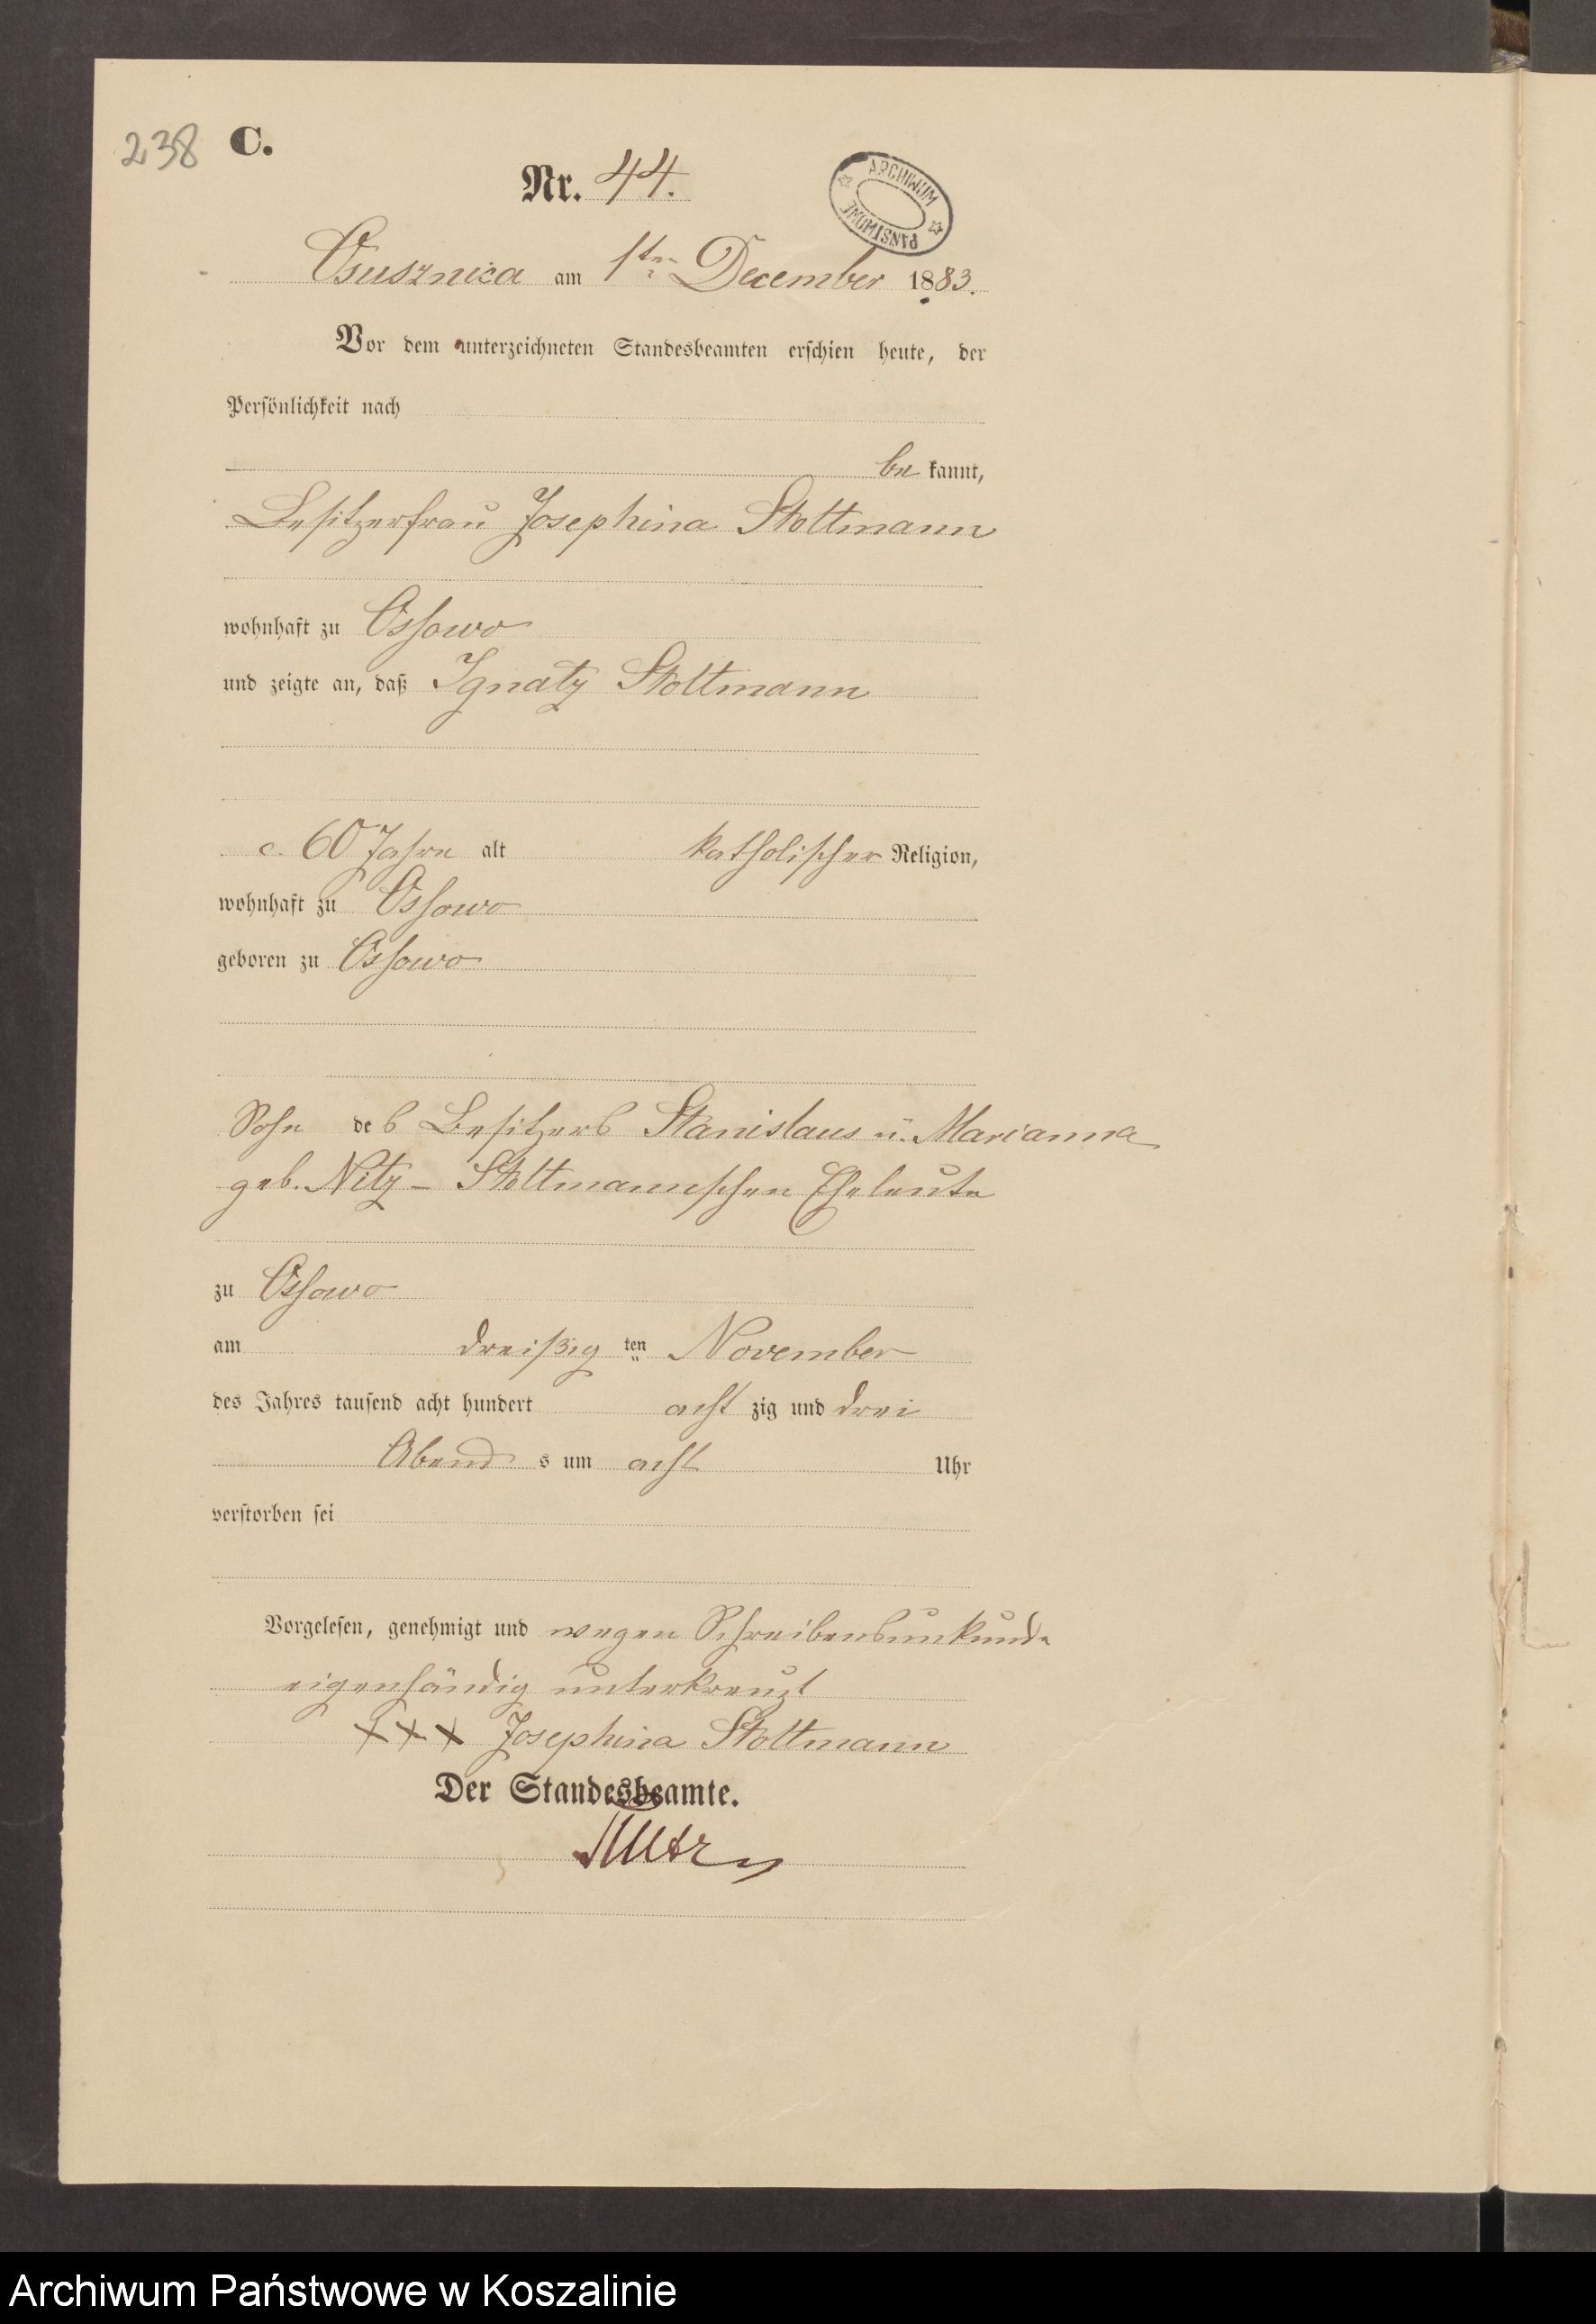 238 C.
Nr. 44.
ARCHIWUM PAŃSTWOWE
Osusznica am 1ten December 1883.
Vor dem unterzeichneten Standesbeamten erschien heute, der
Persönlichkeit nach
be kannt,
Besitzerfrau Josephina Stoltmann
wohnhaft zu Ossowo
und zeigte an, daß Ignatz Stoltmann
c. 60 Jahre alt katholischer Religion,
wohnhaft zu Ossowo
geboren zu Ossowo
Sohn des Besitzers Stanislaus u. Marianna
geb. Nitz - Stoltmannschen Eheleute
zu Ossowo
am dreißig ten November
des Jahres tausend acht hundert acht zig und drei
Abend s um acht Uhr
verstorben sei
Vorgelesen, genehmigt und wegen Schreibensunkunde
eigenhändig unterkreuzt
XXX Josephina Stoltmann
Der Standesbeamte.
Archiwum Państwowe w Koszalinie